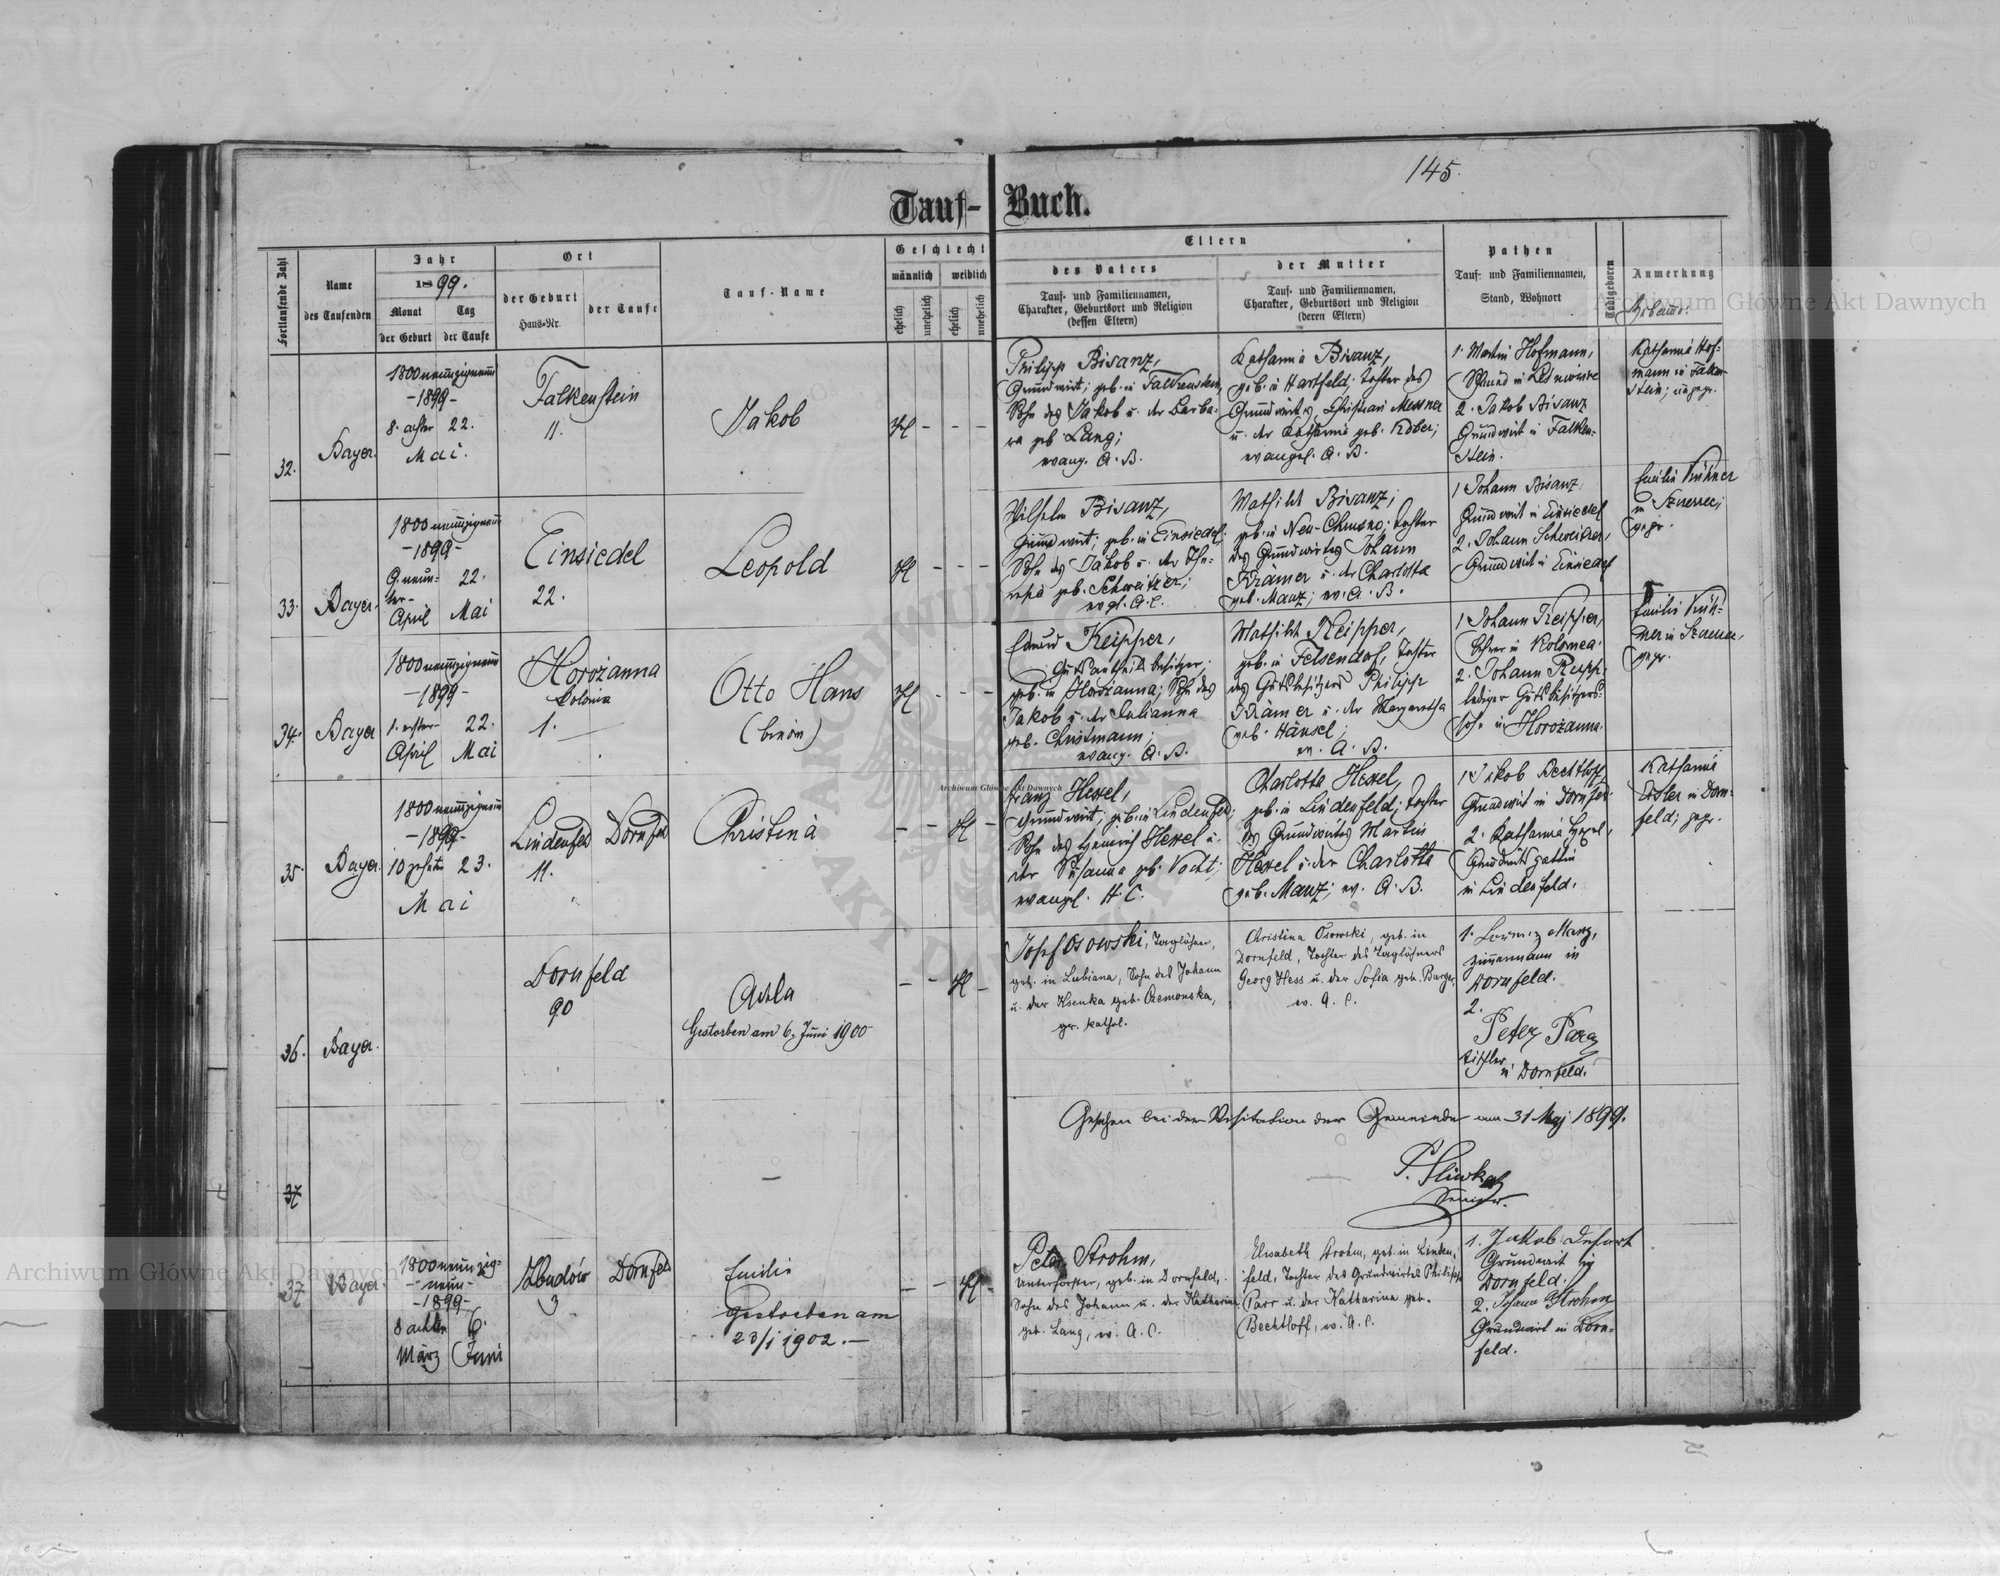 145.
Tauf-Buch.
Fortlaufende Zahl
Name
des Taufenden
Jahr
1899.
Monat
Tag
der Geburt
der Taufe
Ort
der Geburt
Haus-Nr.
der Taufe
Tauf-Name
Geschlecht
männlich
weiblich
ehelich
unehelich
ehelich
unehelich
Eltern
des Vaters
Tauf- und Familiennamen,
Charakter, Geburtsort und Religion
(dessen Eltern)
der Mutter
Tauf- und Familiennamen,
Charakter, Geburtsort und Religion
(deren Eltern)
Pathen
Tauf- und Familiennamen,
Stand, Wohnort
Todtgeboren
Anmerkung
Hebamme:
32.
Bayer.
1800 neunzigneun
-1899-
8. achter 22.
Mai.
Falkenstein
11.
Jakob
Philipp Bisanz,
Grundwirt; geb. in Falkenstein,
Sohn des Jakob u. der Barba-
ra geb. Lang;
evang. A. B.
Katharina Bisanz,
geb. in Hartfeld; Tochter des
Grundwirtes Christian Messner
u. der Katharina geb. Kober;
evangel. A. B.
1. Martin Hofmann,
Schmied in
2. Jakob Bisanz
Grundwirt in Falken-
stein.
Katharina Hof-
mann in Falken-
stein; ungepr.
33.
Bayer.
1800 neunzigneun
-1899-
9. neun-
ter- 22.
April Mai
Einsiedel
22.
Leopold
Wilhelm Bisanz,
Grundwirt; geb. in Einsiedel;
Sohn des Jakob u. der The-
resia geb. Schweitzer;
evgl. A. C.
Mathilde Bisanz;
geb. in Neu-Chrusno; Tochter
des Grundwirtes Johann
Krämer u. der Charlotta
geb. Manz; ev. A. B.
1 Johann Bisanz,
Grundwirt in Einsiedel
2. Johann Schweitzer,
Grundwirt in Einsiedel
Emilie Kühner
in
gepr.
34.
Bayer
1800 neunzigneun
-1899-
1. erster 22.
April Mai
Horożanna
Kolonia
1.
Otto Hans
(binom)
Edmund Keipper,
Gutsantheilsbesitzer;
geb. in Horożanna; Sohn des
Jakob u. der Julianna
geb. Christmann;
evang. A. B.
Mathilde Keipper,
geb. in Felsendorf, Tochter
des Gutsbesitzers Philipp
Krämer u. der Margaretha
geb. Hänsel;
ev. A. B.
1 Johann Keipper,
Lehrer in Kolomea;
2. Johann Rupp;
lediger Gutsbesitzers-
sohn in Horożanna.
Emilie Küh-
ner in
gepr.
35.
Bayer.
1800 neunzigneun
-1899-
10 zehnter 23.
Mai
Lindenfeld
11.
Dornfeld
Christina
Franz Hexel,
Grundwirt, geb. in Lindenfeld;
Sohn des Heinrich Hexel u.
der Susanna geb. Vocht;
evangel. H. C.
Charlotta Hexel,
geb. in Lindenfeld; Tochter
des Grundwirtes Martin
Hexel u. der Charlotta
geb. Manz; ev. A. B.
1 Jakob Bechtloff,
Grundwirt in Dornfeld
2. Katharina Hexel,
Grundwirtsgattin
in Lindenfeld.
Katharina
in Dorn-
feld; gepr.
36.
Bayer.
Dornfeld
90
Adela
Gestorben am 6. Juni 1900
Josef Osowski, Taglöhner,
geb. in Lubiana, Sohn des Johann
u. der Ksenka geb. Czemonska,
gr. kathol.
Christina Osowski, geb. in
Dornfeld, Tochter des Taglöhners
Georg Hess u. der Sofia geb. Burger,
ev. A. C.
1. Lorenz Manz,
Zimmermann in
Dornfeld.
2.
Peter
Tischler
in Dornfeld.
Gesehen bei der Visitation der Gemeinde am 31 Maj 1899.
Senior.
37
37
Bayer.
1800 neunzig-
- neun -
-1899-
8 achter 6.
März Juni
3
Dornfeld
Emilie
Gestorben am
23/1 1902.-
Peter Strohm,
Unterförster, geb. in Dornfeld,
Sohn des Johann u. der Katharina
geb. Lang, ev. A. C.
Elisabeth Strohm, geb. in Linden-
feld, Tochter des Grundwirtes Philipp
Parr u. der Katharina geb.
Bechtloff, ev. A. C.
1. Jakob
Grundwirt in
Dornfeld.
2. Johann Strohm
Grundwirt in Dorn-
feld.
Archiwum Główne Akt Dawnych
Archiwum Główne Akt Dawnych
Archiwum Główne Akt Dawnych